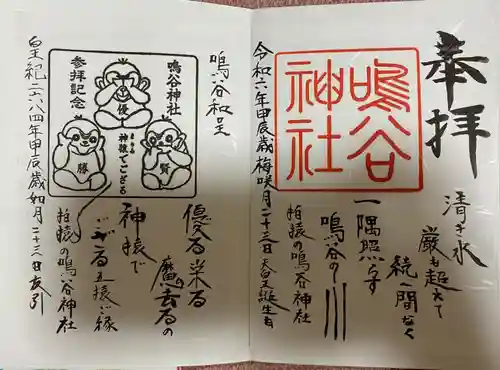 奉拝
清き水
巌も超えて
続く間なく
一隅照らす
鳴谷の川
拍猿の鳴谷神社
令和六年甲辰歳梅咲月二十三日天皇誕生日
鳴谷神社
鳴谷和呈
鳴谷神社
参拝記念
優
勝
賢
神猿でござる
優る来る
魔去るの
神猿で
ござる五猿ご縁
拍猿の鳴谷神社
皇紀二六八四年甲辰歳如月二十三日友引